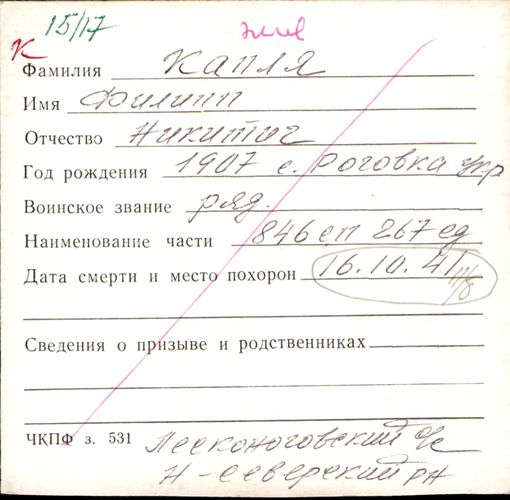 15/17 жив
К
Фамилия Капля
Имя Филипп
Отчество Никитич
Год рождения 1907 с. Роговка Укр
Воинское звание ряд.
Наименование части 846 сп 267 сд
Дата смерти и место похорон 16.10.41
Сведения о призыве и родственниках
ЧКПФ з. 531 Лесконоговский с/с
Н-Северский рн